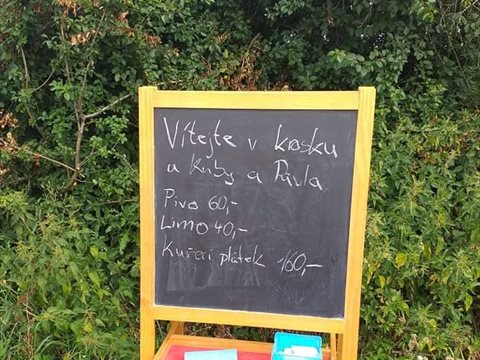 Vítejte v krosku
u Kuby a Pavla
Pivo 60,-
Limo 40,-
Kuřecí plátek 160,-